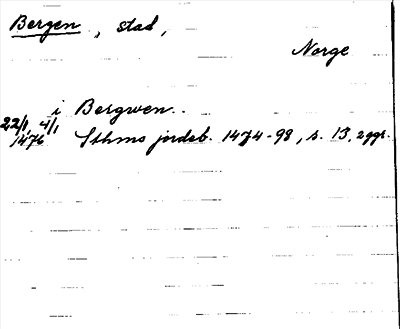 Bergen, stad,
Norge
i Bergwen..
22/1, 4/1
1476 Sthms jordeb. 1474-98, s. 13, 2ggr.